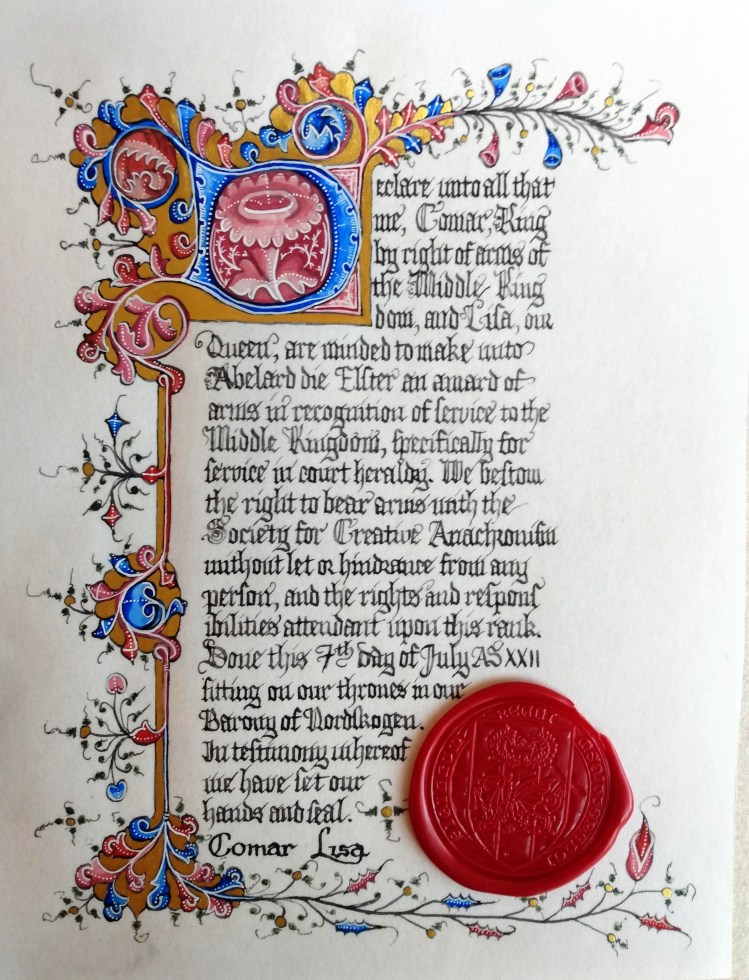 Declare unto all that
we, Comar, King
by right of arms of
the Middle King
dom, and Lisa, our
Queen, are minded to make unto
Abelard die Elster an award of
arms in recognition of service to the
Middle Kingdom, specifically for
service in court heraldy. We bestow
the right to bear arms with the
Society for Creative Anachronism
without let or hindrance from any
person, and the rights and respons
ibilities attendant upon this rank.
Done this 7th day of July AS XXII
sitting on our thrones in our
Barony of Nordskogen.
In testimony whereof
we have set our
hands and seal.
Comar Lisa